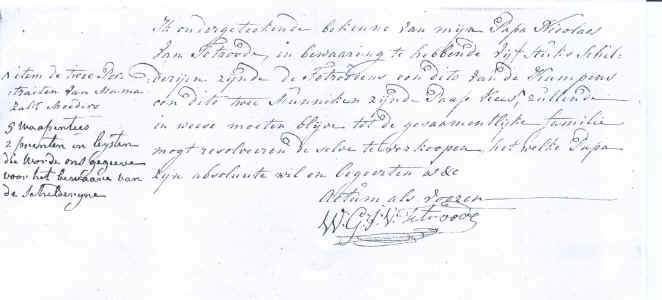 Ik ondergeteekende bekenne van mijn Papa Nicolaes
van Tetroode, in bewaaring te hebbende vijf stuks Schil-
derijen zijnde de Tetroodens een dito van de Kampens
een dito twee Munneken zijnde Paap Kees, zullende
in weese moeten blijve tot de gesaamentlijke familie
mogt resolveeren de selve te verkoopen het welke Papa
zijn absolute wil en begeerten is &c
Actum als vooren
W.G.J.V. Tetroode
item de twee Por
traiten van Mama
Zalr Moeders
5 waapenties
2 prenten in leysten
die worde ons gegeeve
voor het bewaare van
de schilderyne